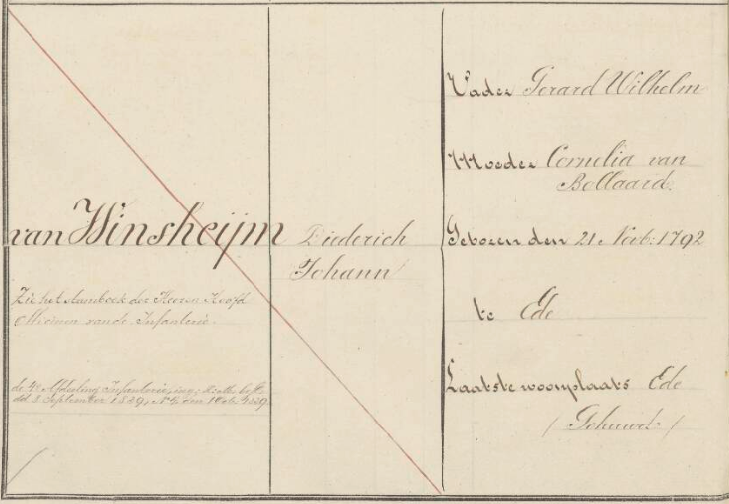 van Winsheijm
Zie het stamboek der Heeren Hoofd
Officieren van de Infanterie.
de 4e Afdeeling Infanterie, ing:
dd. 3 September 1829, No
Diederich
Johann
Vader Gerard Wilhelm
Moeder Cornelia van
Bollaard.
Geboren den 21 Novb: 1792
te Ede
Laatste woonplaats Ede
/ Gehuwd. /